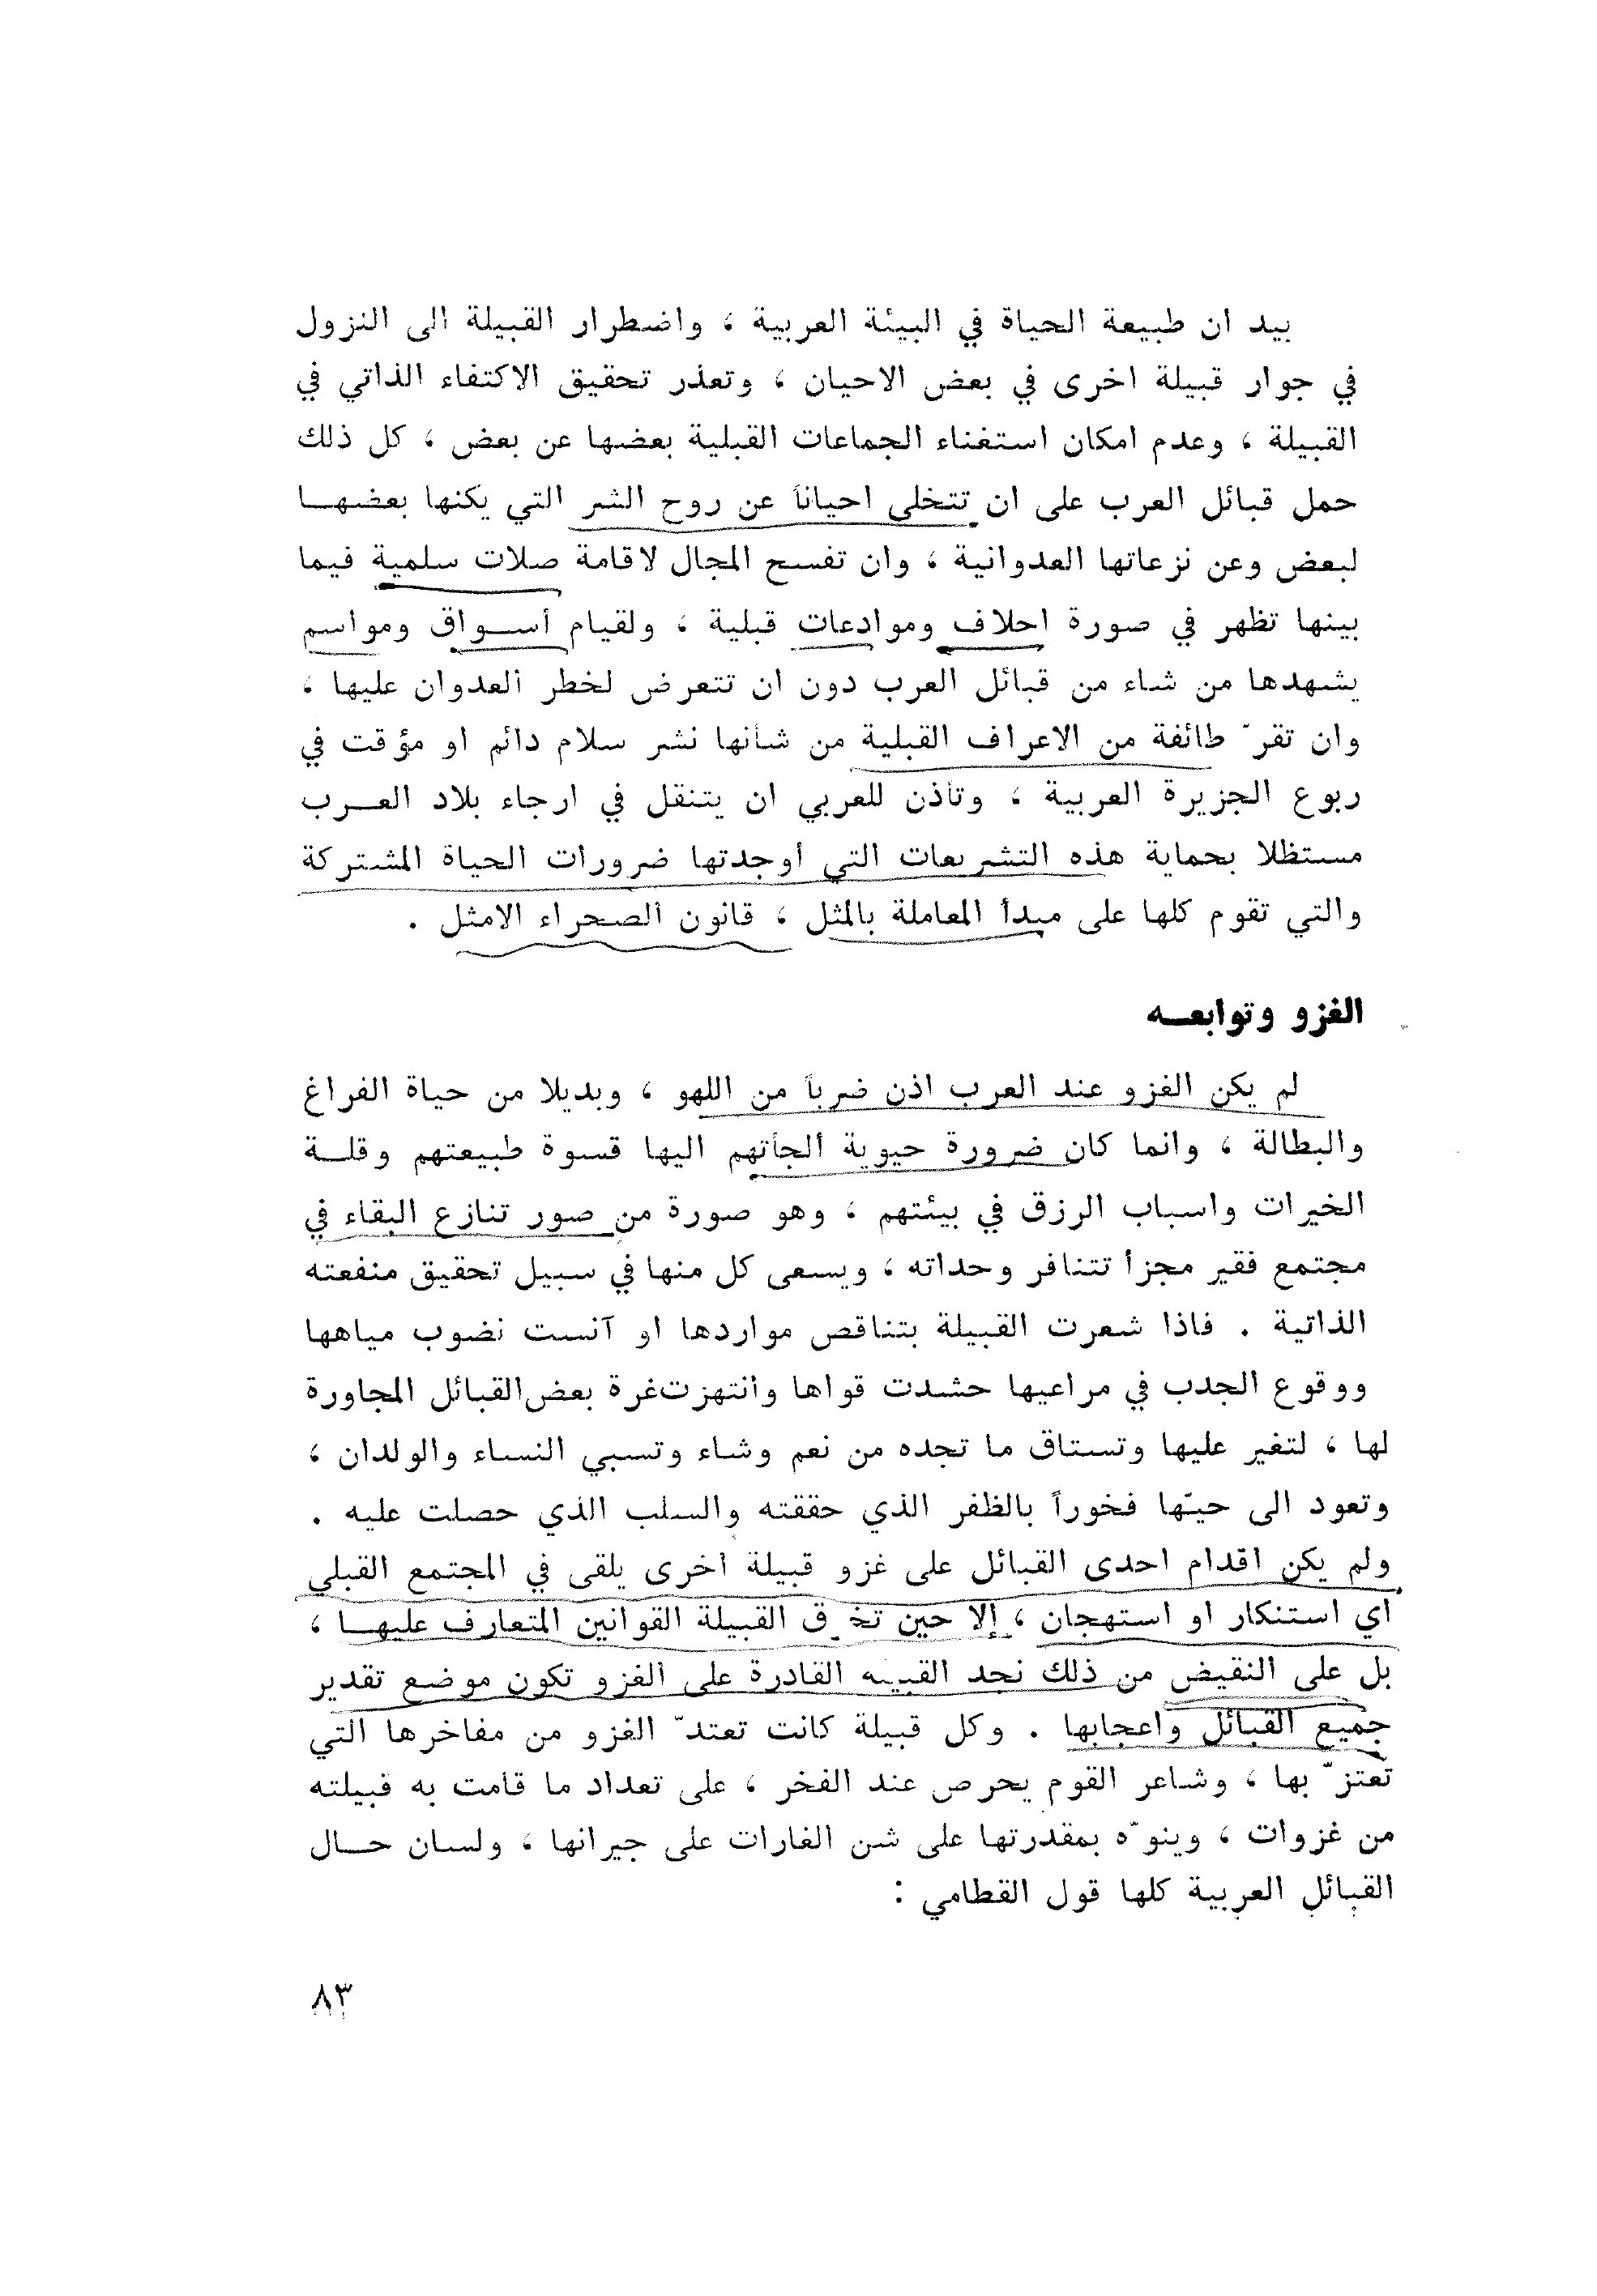 بيد ان طبيعة الحياة في البيئة العربية ، واضطرار القبيلة الى النزول
في جوار قبيلة اخرى في بعض الاحيان ، وتعذر تحقيق الاكتفاء الذاتي في
القبيلة ، وعدم امكان استغناء الجماعات القبلية بعضها عن بعض ، كل ذلك
حمل قبائل العرب على ان تتخلى احياناً عن روح الشر التي يكنها بعضهــا
لبعض وعن نزعاتها العدوانية ، وان تفسح المجال لاقامة صلات سلمية فيما
بينها تظهر في صورة احلاف وموادعات قبلية ، ولقيام أســواق ومواسم
يشهدها من شاء من قبائل العرب دون ان تتعرض لخطر العدوان عليها ،
وان تقرّ طائفة من الاعراف القبلية من شأنها نشر سلام دائم او مؤقت في
ربوع الجزيرة العربية ، وتأذن للعربي ان يتنقل في ارجاء بلاد العــرب
مستظلا بحماية هذه التشريعات التي أوجدتها ضرورات الحياة المشتركة
والتي تقوم كلها على مبدأ المعاملة بالمثل ، قانون الصحراء الامثل .
الغزو وتوابعــه
لم يكن الغزو عند العرب اذن ضرباً من اللهو ، وبديلا من حياة الفراغ
والبطالة ، وانما كان ضرورة حيوية ألجأتهم اليها قسوة طبيعتهم وقلــة
الخيرات واسباب الرزق في بيئتهم ، وهو صورة من صور تنازع البقاء في
مجتمع فقير مجزأ تتنافر وحداته ، ويسعى كل منها في سبيل تحقيق منفعته
الذاتية . فاذا شعرت القبيلة بتناقص مواردها او آنست نضوب مياهها
ووقوع الجدب في مراعيها حشدت قواها وانتهزت غرة بعض القبائل المجاورة
لها ، لتغير عليها وتستاق ما تجده من نعم وشاء وتسبي النساء والولدان ،
وتعود الى حيّها فخوراً بالظفر الذي حققته والسلب الذي حصلت عليه .
ولم يكن اقدام احدى القبائل على غزو قبيلة أخرى يلقى في المجتمع القبلي
أي استنكار او استهجان ، إلا حين تخرق القبيلة القوانين المتعارف عليهــا ،
بل على النقيض من ذلك نجد القبيلة القادرة على الغزو تكون موضع تقدير
جميع القبائل واعجابها . وكل قبيلة كانت تعتدّ الغزو من مفاخرها التي
تعتزّ بها ، وشاعر القوم يحرص عند الفخر ، على تعداد ما قامت به قبيلته
من غزوات ، وينوّه بمقدرتها على شن الغارات على جيرانها ، ولسان حــال
القبائل العربية كلها قول القطامي :
٨٣